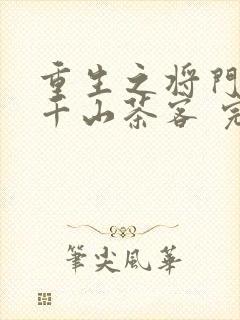 重生之将门
千山茶客 完
筆尖風華